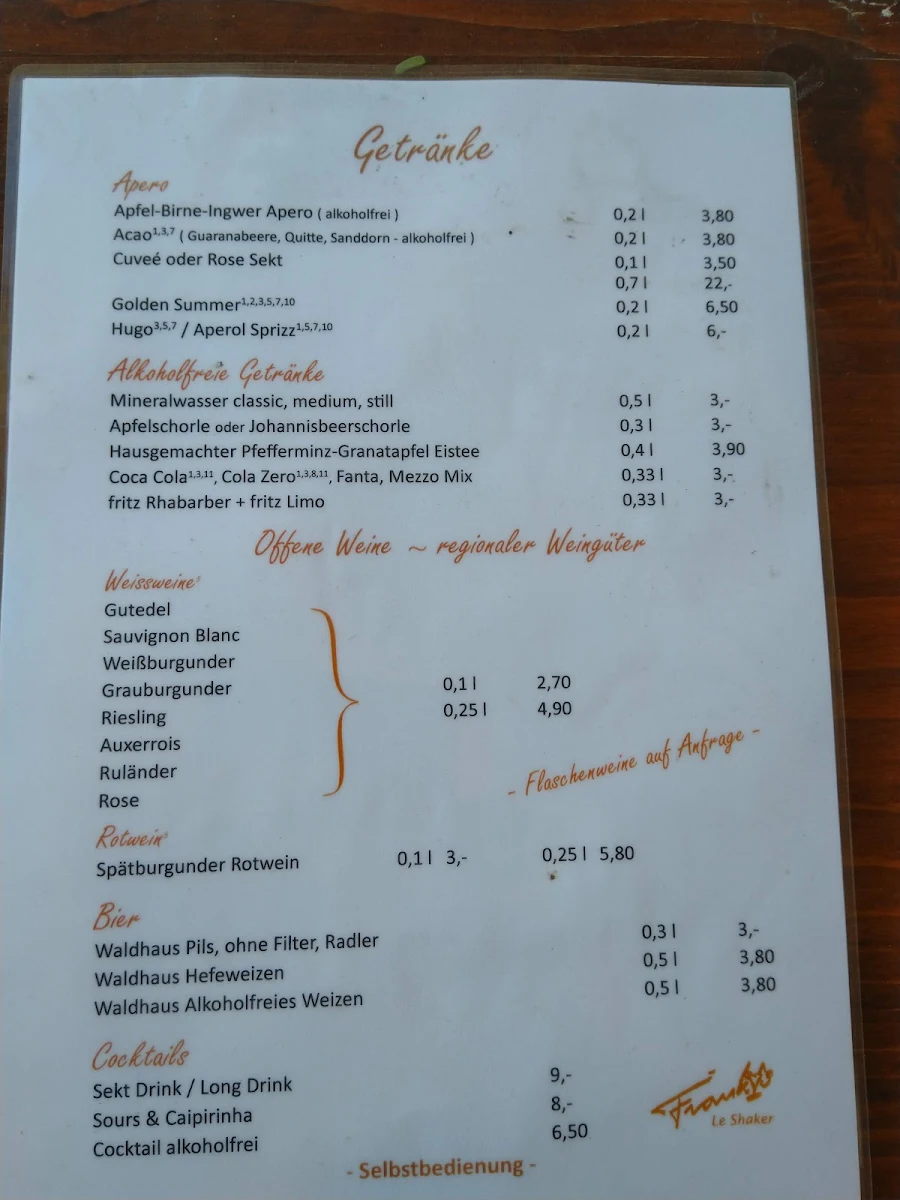 Getränke
Apero
Apfel-Birne-Ingwer Apero ( alkoholfrei ) 0,2 l 3,80
Acao1,3,7 ( Guaranabeere, Quitte, Sanddorn - alkoholfrei ) 0,2 l 3,80
Cuveé oder Rose Sekt 0,1 l 3,50
0,7 l 22,-
Golden Summer1,2,3,5,7,10 0,2 l 6,50
Hugo3,5,7 / Aperol Sprizz1,5,7,10 0,2 l 6,-
Alkoholfreie Getränke
Mineralwasser classic, medium, still 0,5 l 3,-
Apfelschorle oder Johannisbeerschorle 0,3 l 3,-
Hausgemachter Pfefferminz-Granatapfel Eistee 0,4 l 3,90
Coca Cola1,3,11, Cola Zero1,3,8,11, Fanta, Mezzo Mix 0,33 l 3,-
fritz Rhabarber + fritz Limo 0,33 l 3,-
Offene Weine ~ regionaler Weingüter
Weissweine
Gutedel
Sauvignon Blanc
Weißburgunder
Grauburgunder 0,1 l 2,70
Riesling 0,25 l 4,90
Auxerrois
Ruländer
Rose
- Flaschenweine auf Anfrage -
Rotwein
Spätburgunder Rotwein 0,1 l 3,- 0,25 l 5,80
Bier
Waldhaus Pils, ohne Filter, Radler 0,3 l 3,-
Waldhaus Hefeweizen 0,5 l 3,80
Waldhaus Alkoholfreies Weizen 0,5 l 3,80
Cocktails
Sekt Drink / Long Drink 9,-
Sours & Caipirinha 8,-
Cocktail alkoholfrei 6,50
Franky
Le Shaker
- Selbstbedienung -